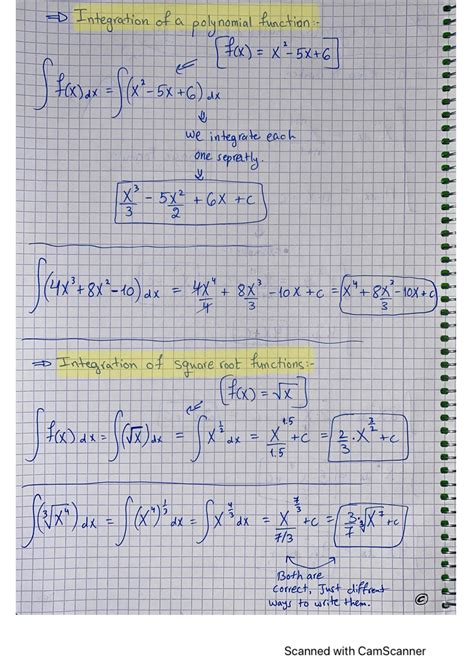 ⇒ Integration of a polynomial function:-
[f(x) = x² - 5x + 6]
∫ f(x) dx = ∫(x² - 5x + 6) dx
we integrate each
one sepreatly.
x³/3 - 5x²/2 + 6x + c
∫(4x³ + 8x² - 10) dx = 4x⁴/4 + 8x³/3 - 10x + c = x⁴ + 8x³/3 - 10x + c
⇒ Integration of square root functions:-
[f(x) = √x]
∫ f(x) dx = ∫(√x) dx = ∫ x^(1/2) dx = x^1.5/1.5 + c = 2/3 · x^(3/2) + c
∫(∛x⁴) dx = ∫(x⁴)^(1/3) dx = ∫ x^(4/3) dx = x^(7/3)/(7/3) + c = 3/7 · ∛x⁷ + c
Both are
correct, Just diffrent
ways to write them.
©
Scanned with CamScanner